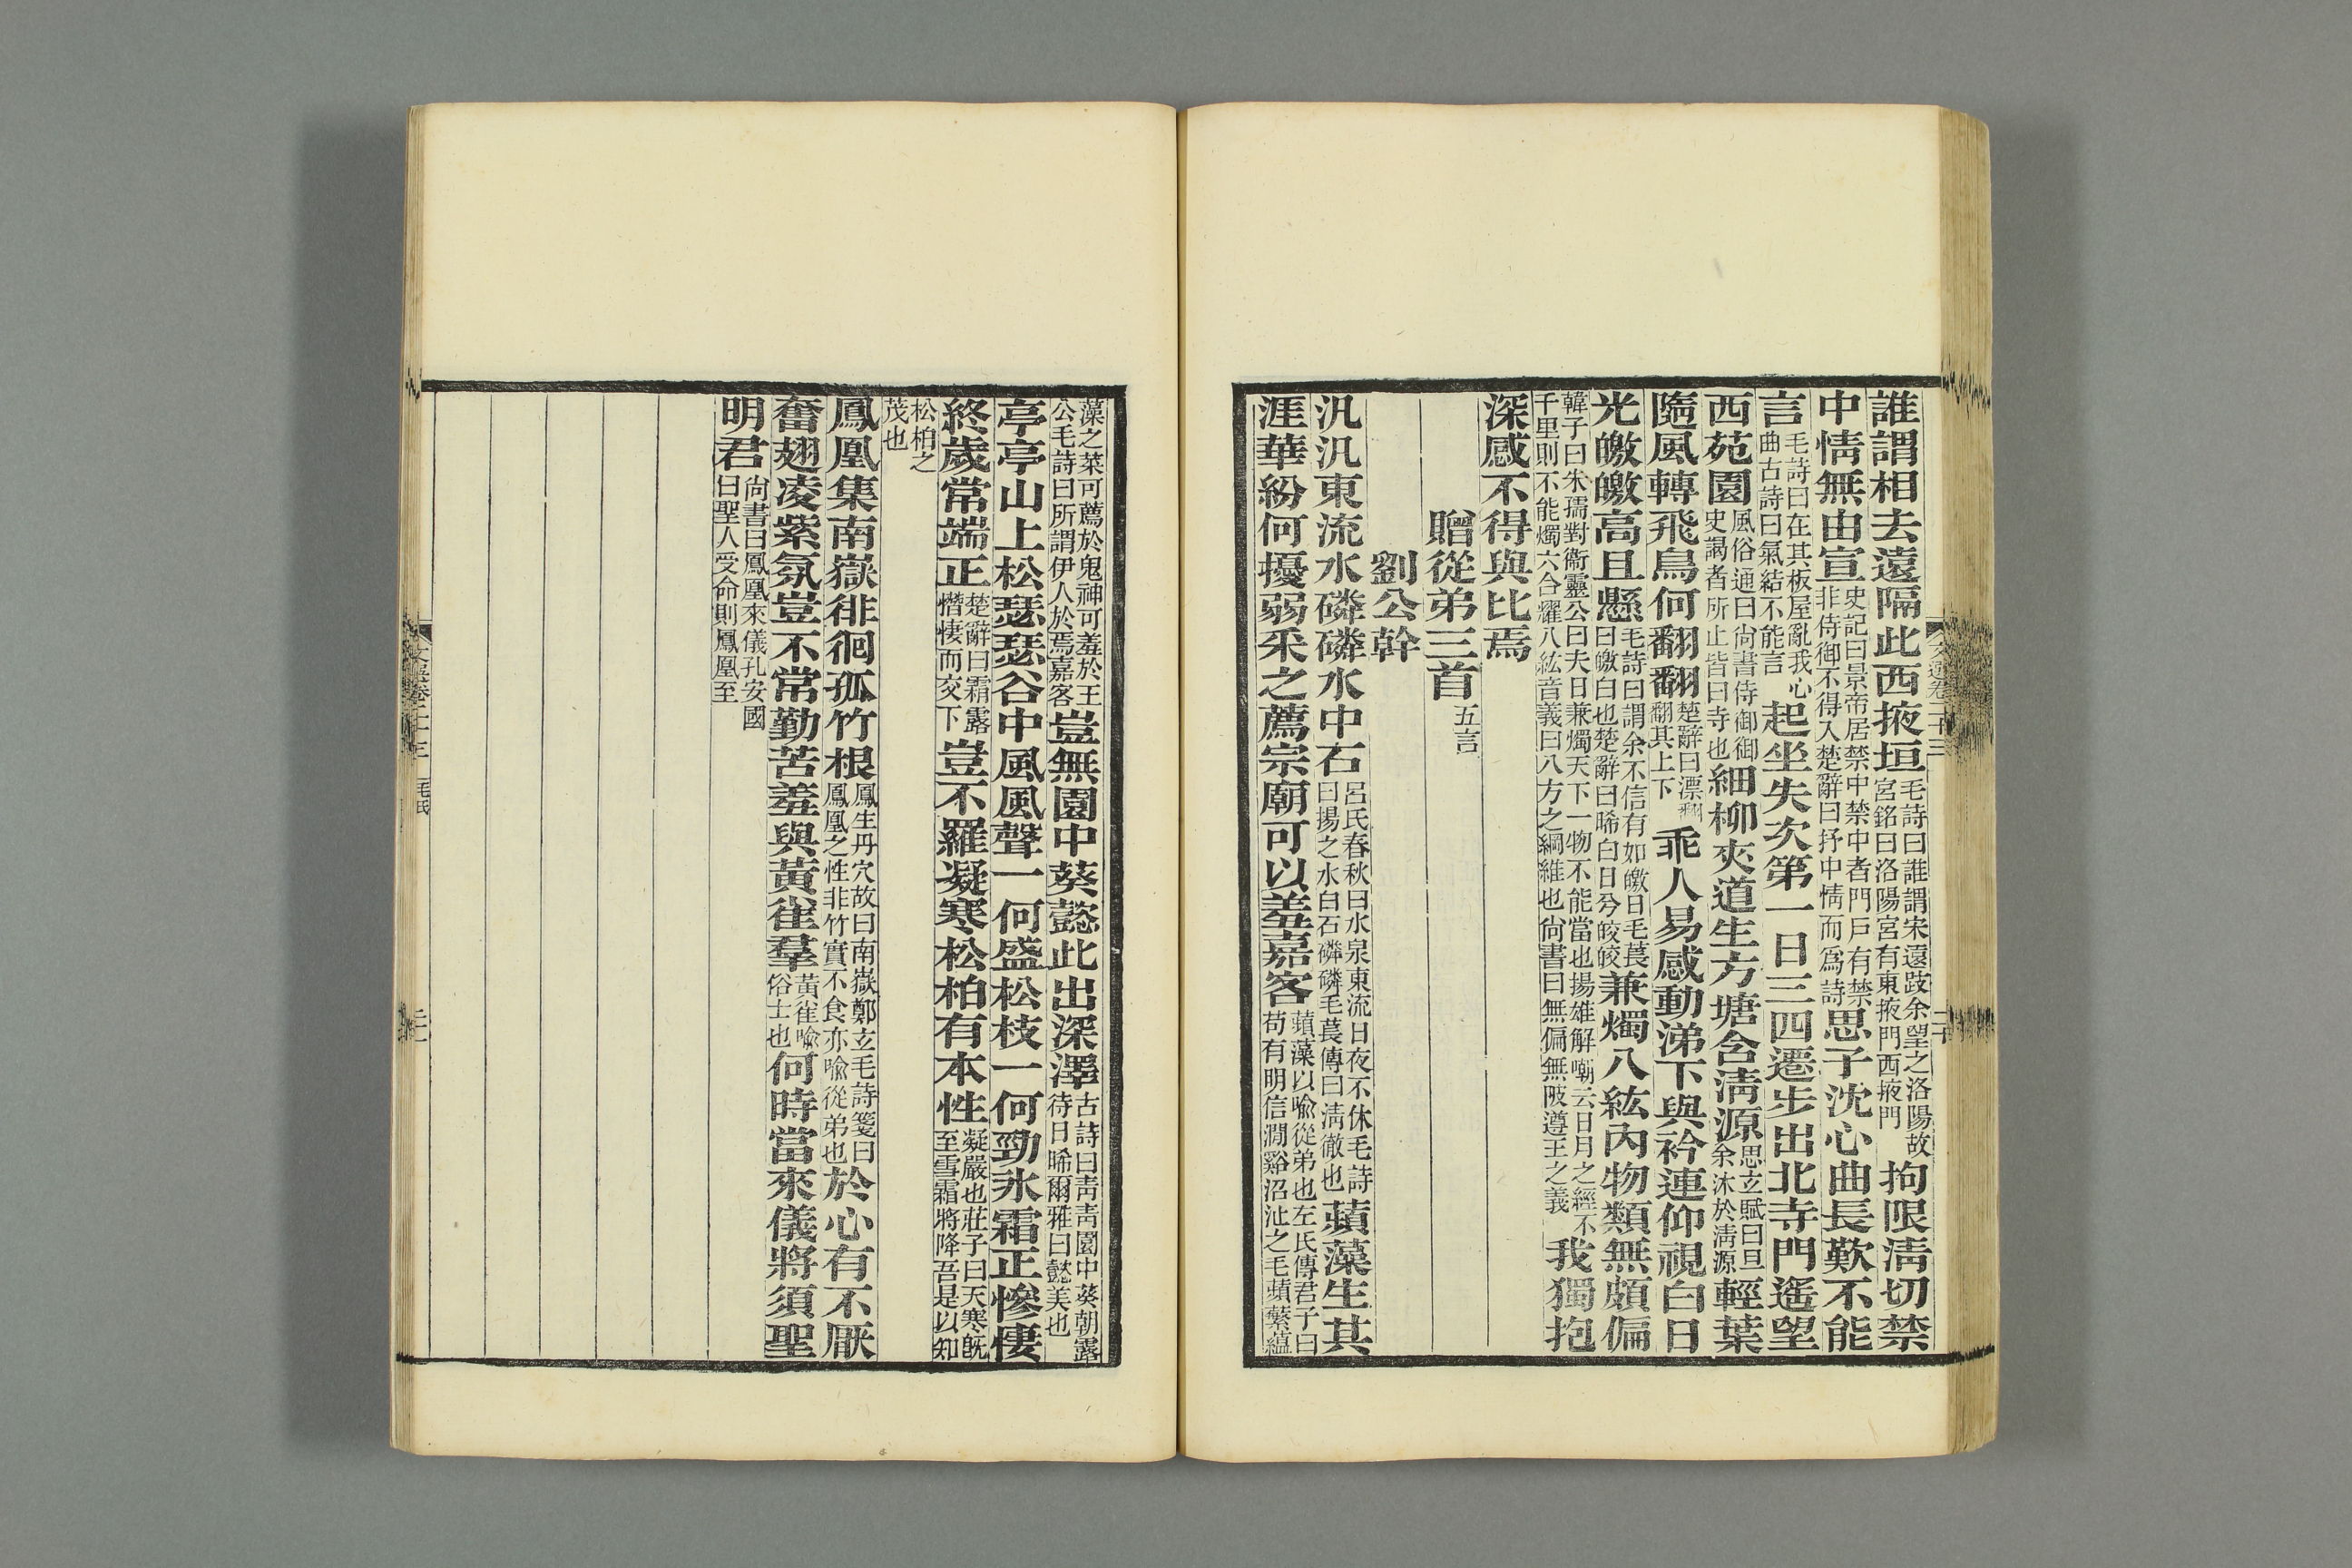 誰謂相去遠隔此西掖垣毛詩曰誰謂宋遠跂余望之洛陽故宮銘曰洛陽宮有東掖門西掖門拘限淸切禁
中情無由宣史記曰景帝居禁中禁中者門戶有禁非侍御不得入楚辭曰抒中情而爲詩思子沈心曲長歎不能
言毛詩曰在其板屋亂我心曲古詩曰氣結不能言起坐失次第一日三四遷步出北寺門遙望
西苑園風俗通曰尙書侍御御史謁者所止皆曰寺也細柳夾道生方塘含淸源思玄賦曰旦余沐於淸源輕葉
隨風轉飛鳥何翻翻楚辭曰漂翻翻其上下乖人易感動涕下與衿連仰視白日
光皦皦高且懸毛詩曰謂余不信有如皦日毛萇曰皦白也楚辭曰晞白日兮皎皎兼燭八紘內物類無頗偏
韓子曰朱孺對衞靈公曰夫日兼燭天下一物不能當也揚雄解嘲云日月之經不千里則不能燭六合燿八紘音義曰八方之綱維也尙書曰無偏無陂遵王之義我獨抱
深感不得與比焉
贈從弟三首五言
劉公幹
汎汎東流水磷磷水中石呂氏春秋曰水泉東流日夜不休毛詩曰揚之水白石磷磷毛萇傳曰淸徹也蘋藻生其
涯華紛何擾弱采之薦宗廟可以羞嘉客蘋藻以喻從弟也左氏傳君子曰苟有明信澗谿沼沚之毛蘋蘩蘊
藻之菜可薦於鬼神可羞於王公毛詩曰所謂伊人於焉嘉客豈無園中葵懿此出深澤古詩曰靑靑園中葵朝露待日晞爾雅曰懿美也
亭亭山上松瑟瑟谷中風風聲一何盛松枝一何勁氷霜正慘悽
終歲常端正楚辭曰霜露憯悽而交下豈不羅凝寒松柏有本性凝嚴也莊子曰天寒旣至雪霜將降吾是以知
松柏之茂也
鳳凰集南嶽徘徊孤竹根鳳生丹穴故曰南嶽鄭玄毛詩箋曰鳳凰之性非竹實不食亦喻從弟也於心有不厭
奮翅凌紫氛豈不常勤苦羞與黃雀羣黃雀喻俗士也何時當來儀將須聖
明君尙書曰鳳凰來儀孔安國曰聖人受命則鳳凰至
文選卷二十三
二十
毛氏
二十一